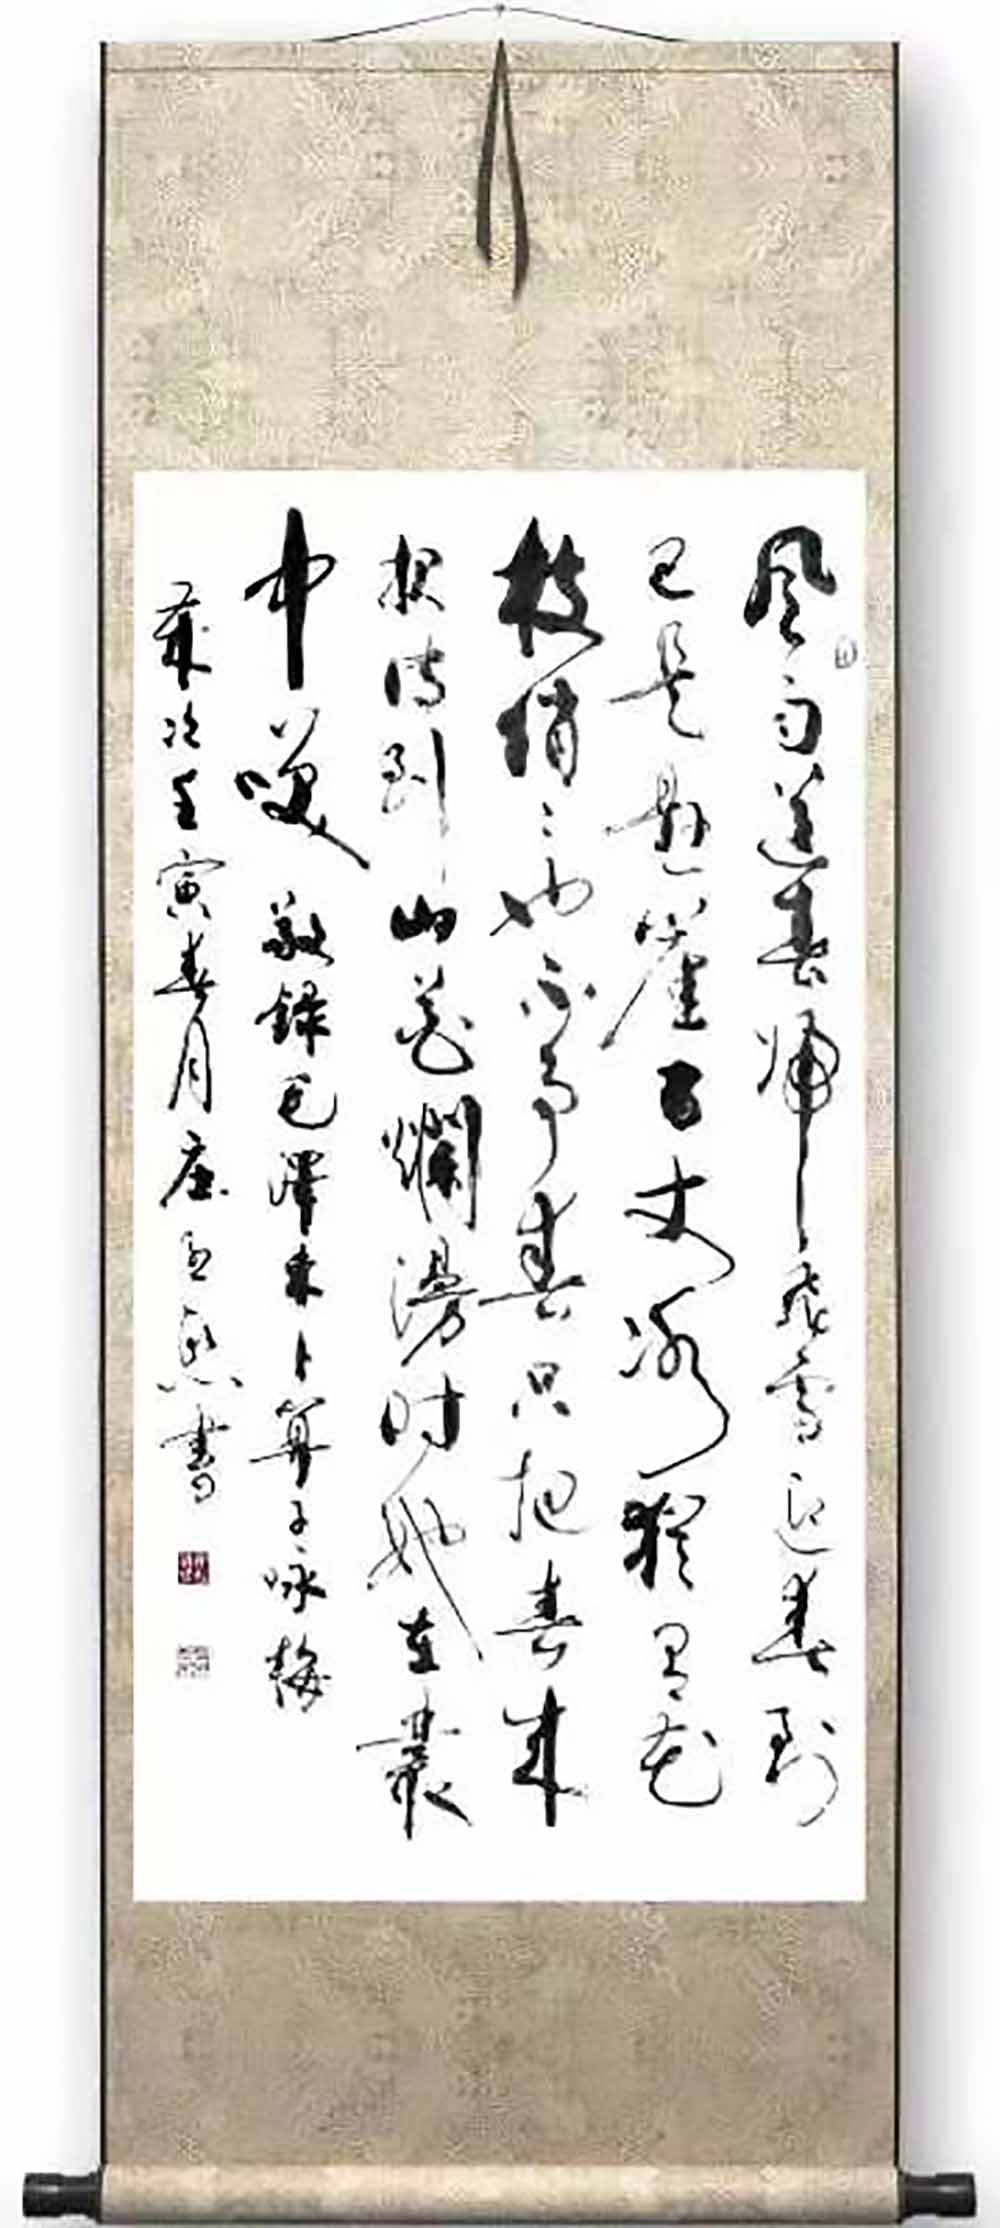 风雨送春归飛雪迎春到
已是悬崖百丈冰犹有花
枝俏〻也不争春只把春来
报待到山花爛漫时她在叢
中笑 敬録毛澤東卜算子咏梅
歲次壬寅春月書